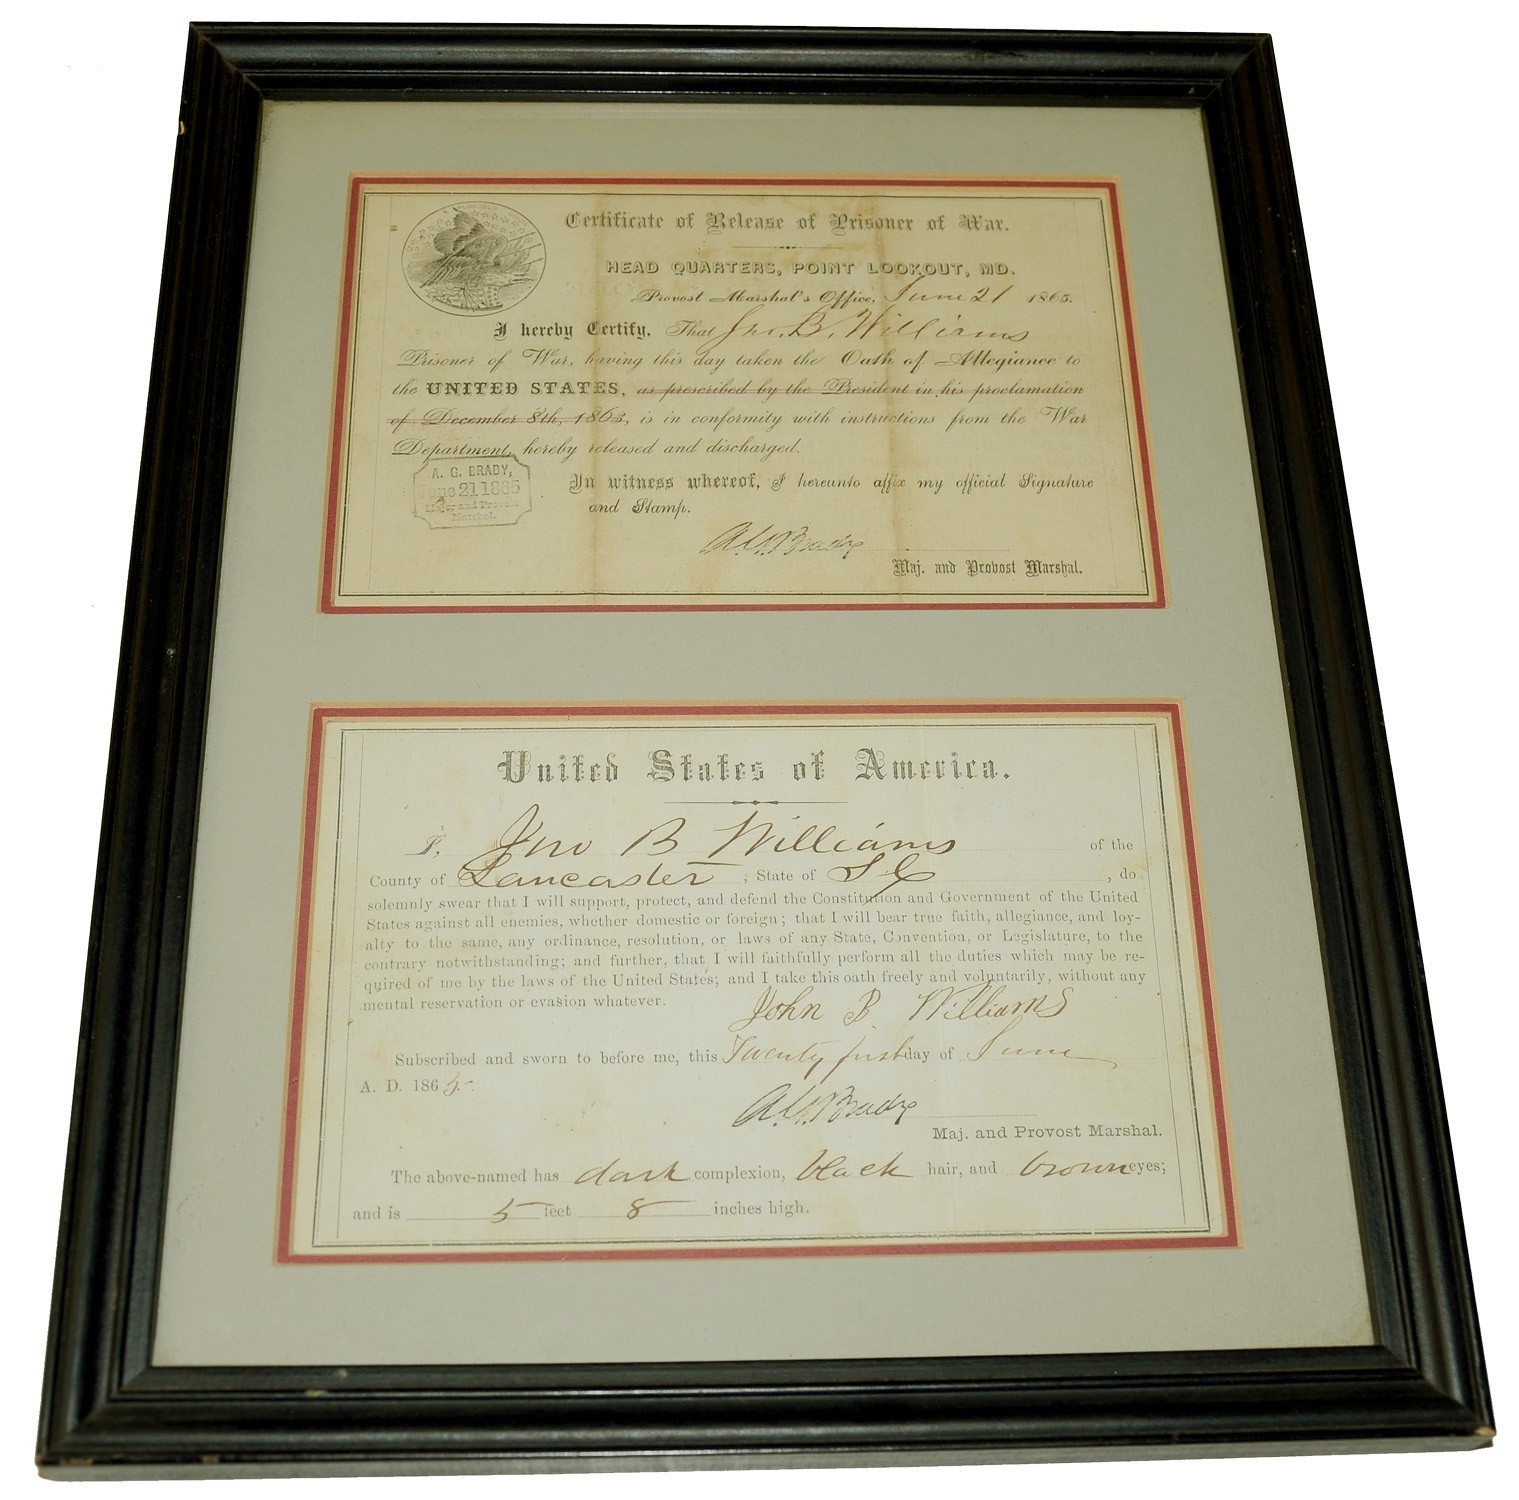 E PLURIBUS
Certificate of Release of Prisoner of War.
HEAD QUARTERS, POINT LOOKOUT, MD.
Provost Marshal's Office, June 21 1865.
I hereby Certify, That Jno. B. Williams
Prisoner of War, having this day taken the Oath of Allegiance to
the UNITED STATES, as prescribed by the President in his proclamation
of December 8th, 1863, is in conformity with instructions from the War
Department, hereby released and discharged.
A. G. BRADY,
June 21 1865
Major and Provost
Marshal.
In witness whereof, I hereunto affix my official Signature
and Stamp.
A. G. Brady
Maj. and Provost Marshal.
United States of America.
I, Jno B Williams of the
County of Lancaster, State of S C, do
solemnly swear that I will support, protect, and defend the Constitution and Government of the United
States against all enemies, whether domestic or foreign; that I will bear true faith, allegiance, and loy-
alty to the same, any ordinance, resolution, or laws of any State, Convention, or Legislature, to the
contrary notwithstanding; and further, that I will faithfully perform all the duties which may be re-
quired of me by the laws of the United States; and I take this oath freely and voluntarily, without any
mental reservation or evasion whatever.
John B Williams
Subscribed and sworn to before me, this Twenty first day of June
A. D. 1865.
A. G. Brady
Maj. and Provost Marshal.
The above-named has dark complexion, black hair, and brown eyes;
and is 5 feet 8 inches high.